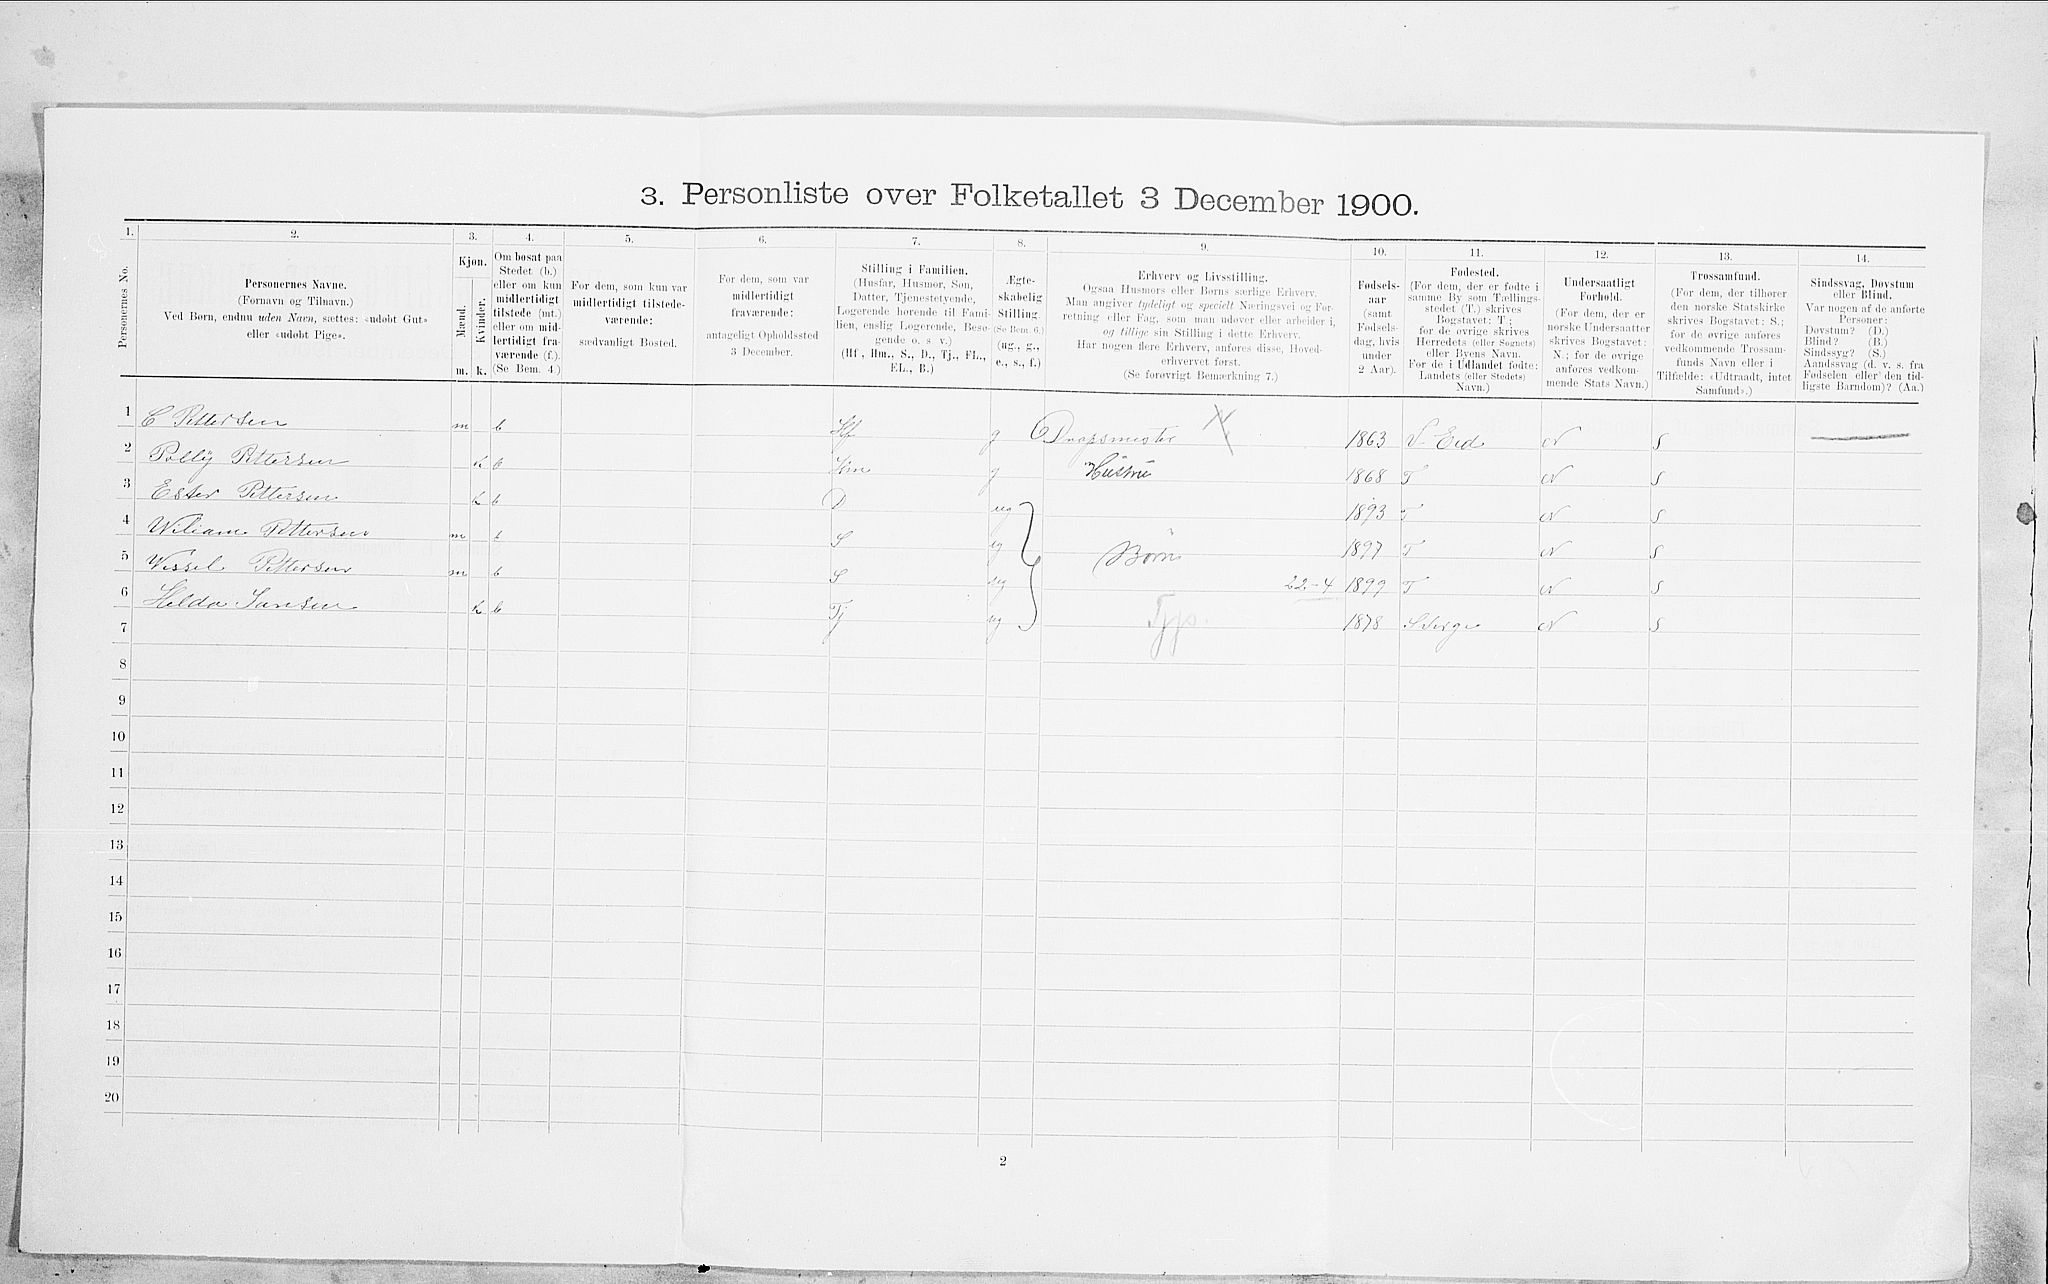 3. Personliste over Folketallet 3 December 1900.
1. 2. 3. 4. 5. 6. 7. 8. 9. 10. 11. 12. 13. 14.
Personernes No.
Personernes Navne.
(Fornavn og Tilnavn.)
Ved Børn, endnu uden Navn, sættes: «udøbt Gut»
eller «udøbt Pige».
Kjøn.
Mænd.
Kvinder.
m. k.
Om bosat paa
Stedet (b.)
eller om kun
midlertidigt
tilstede (mt.)
eller om mid-
lertidigt fra-
værende (f.).
(Se Bem. 4.)
For dem, som kun var
midlertidigt tilstede-
værende:
sædvanligt Bosted.
For dem, som var
midlertidigt
fraværende:
antageligt Opholdssted
3 December.
Stilling i Familien.
(Husfar, Husmor, Søn,
Datter, Tjenestetyende,
Logerende hørende til Fami-
lien, enslig Logerende, Besø-
gende o. s. v.)
(Hf., Hm., S., D., Tj., FL.,
EL., B.)
Ægte-
skabelig
Stilling.
(Se Bem. 6.)
(ug., g.,
e., s., f.)
Erhverv og Livsstilling.
Ogsaa Husmors eller Børns særlige Erhverv.
Man angiver tydeligt og specielt Næringsvei og For-
retning eller Fag, som man udøver eller arbeider i,
og tillige sin Stilling i dette Erhverv.
Har nogen flere Erhverv, anføres disse, Hoved-
erhvervet først.
(Se forøvrigt Bemærkning 7.)
Fødsels-
aar
(samt
Fødsels-
dag, hvis
under
2 Aar).
Fødested.
(For dem, der er fødte i
samme By som Tællings-
stedet (T.) skrives
Bogstavet: T;
for de øvrige skrives
Herredets (eller Sognets)
eller Byens Navn.
For de i Udlandet fødte:
Landets (eller Stedets)
Navn.)
Undersaatligt
Forhold.
(For dem, der er
norske Undersaatter
skrives Bogstavet:
N.; for de øvrige
anføres vedkom-
mende Stats Navn.)
Trossamfund.
(For dem, der tilhører
den norske Statskirke
skrives Bogstavet: S.;
for de øvrige anføres
vedkommende Trossam-
funds Navn eller i
Tilfælde: «Udtraadt, intet
Samfund».)
Sindssvag, Døvstum
eller Blind.
Var nogen af de anførte
Personer:
Døvstum? (D.)
Blind? (B.)
Sindssyg? (S.)
Aandssvag (d. v. s. fra
Fødselen eller den tid-
ligste Barndom)? (Aa.)
1 C Pettersen m b Hf g 1863 V Eid N S
2 Polly Pettersen k b Hm g Hustru 1868 T N S
3 Ester Pettersen k b D ug 1893 T N S
4 Wiliam Pettersen m b S ug Børn 1897 T N S
5 Vessel Pettersen m b S ug 22-4 1899 T N S
6 Helda Jansen k b Tj ug Tjp. 1878 N S
7
8
9
10
11
12
13
14
15
16
17
18
19
20
2